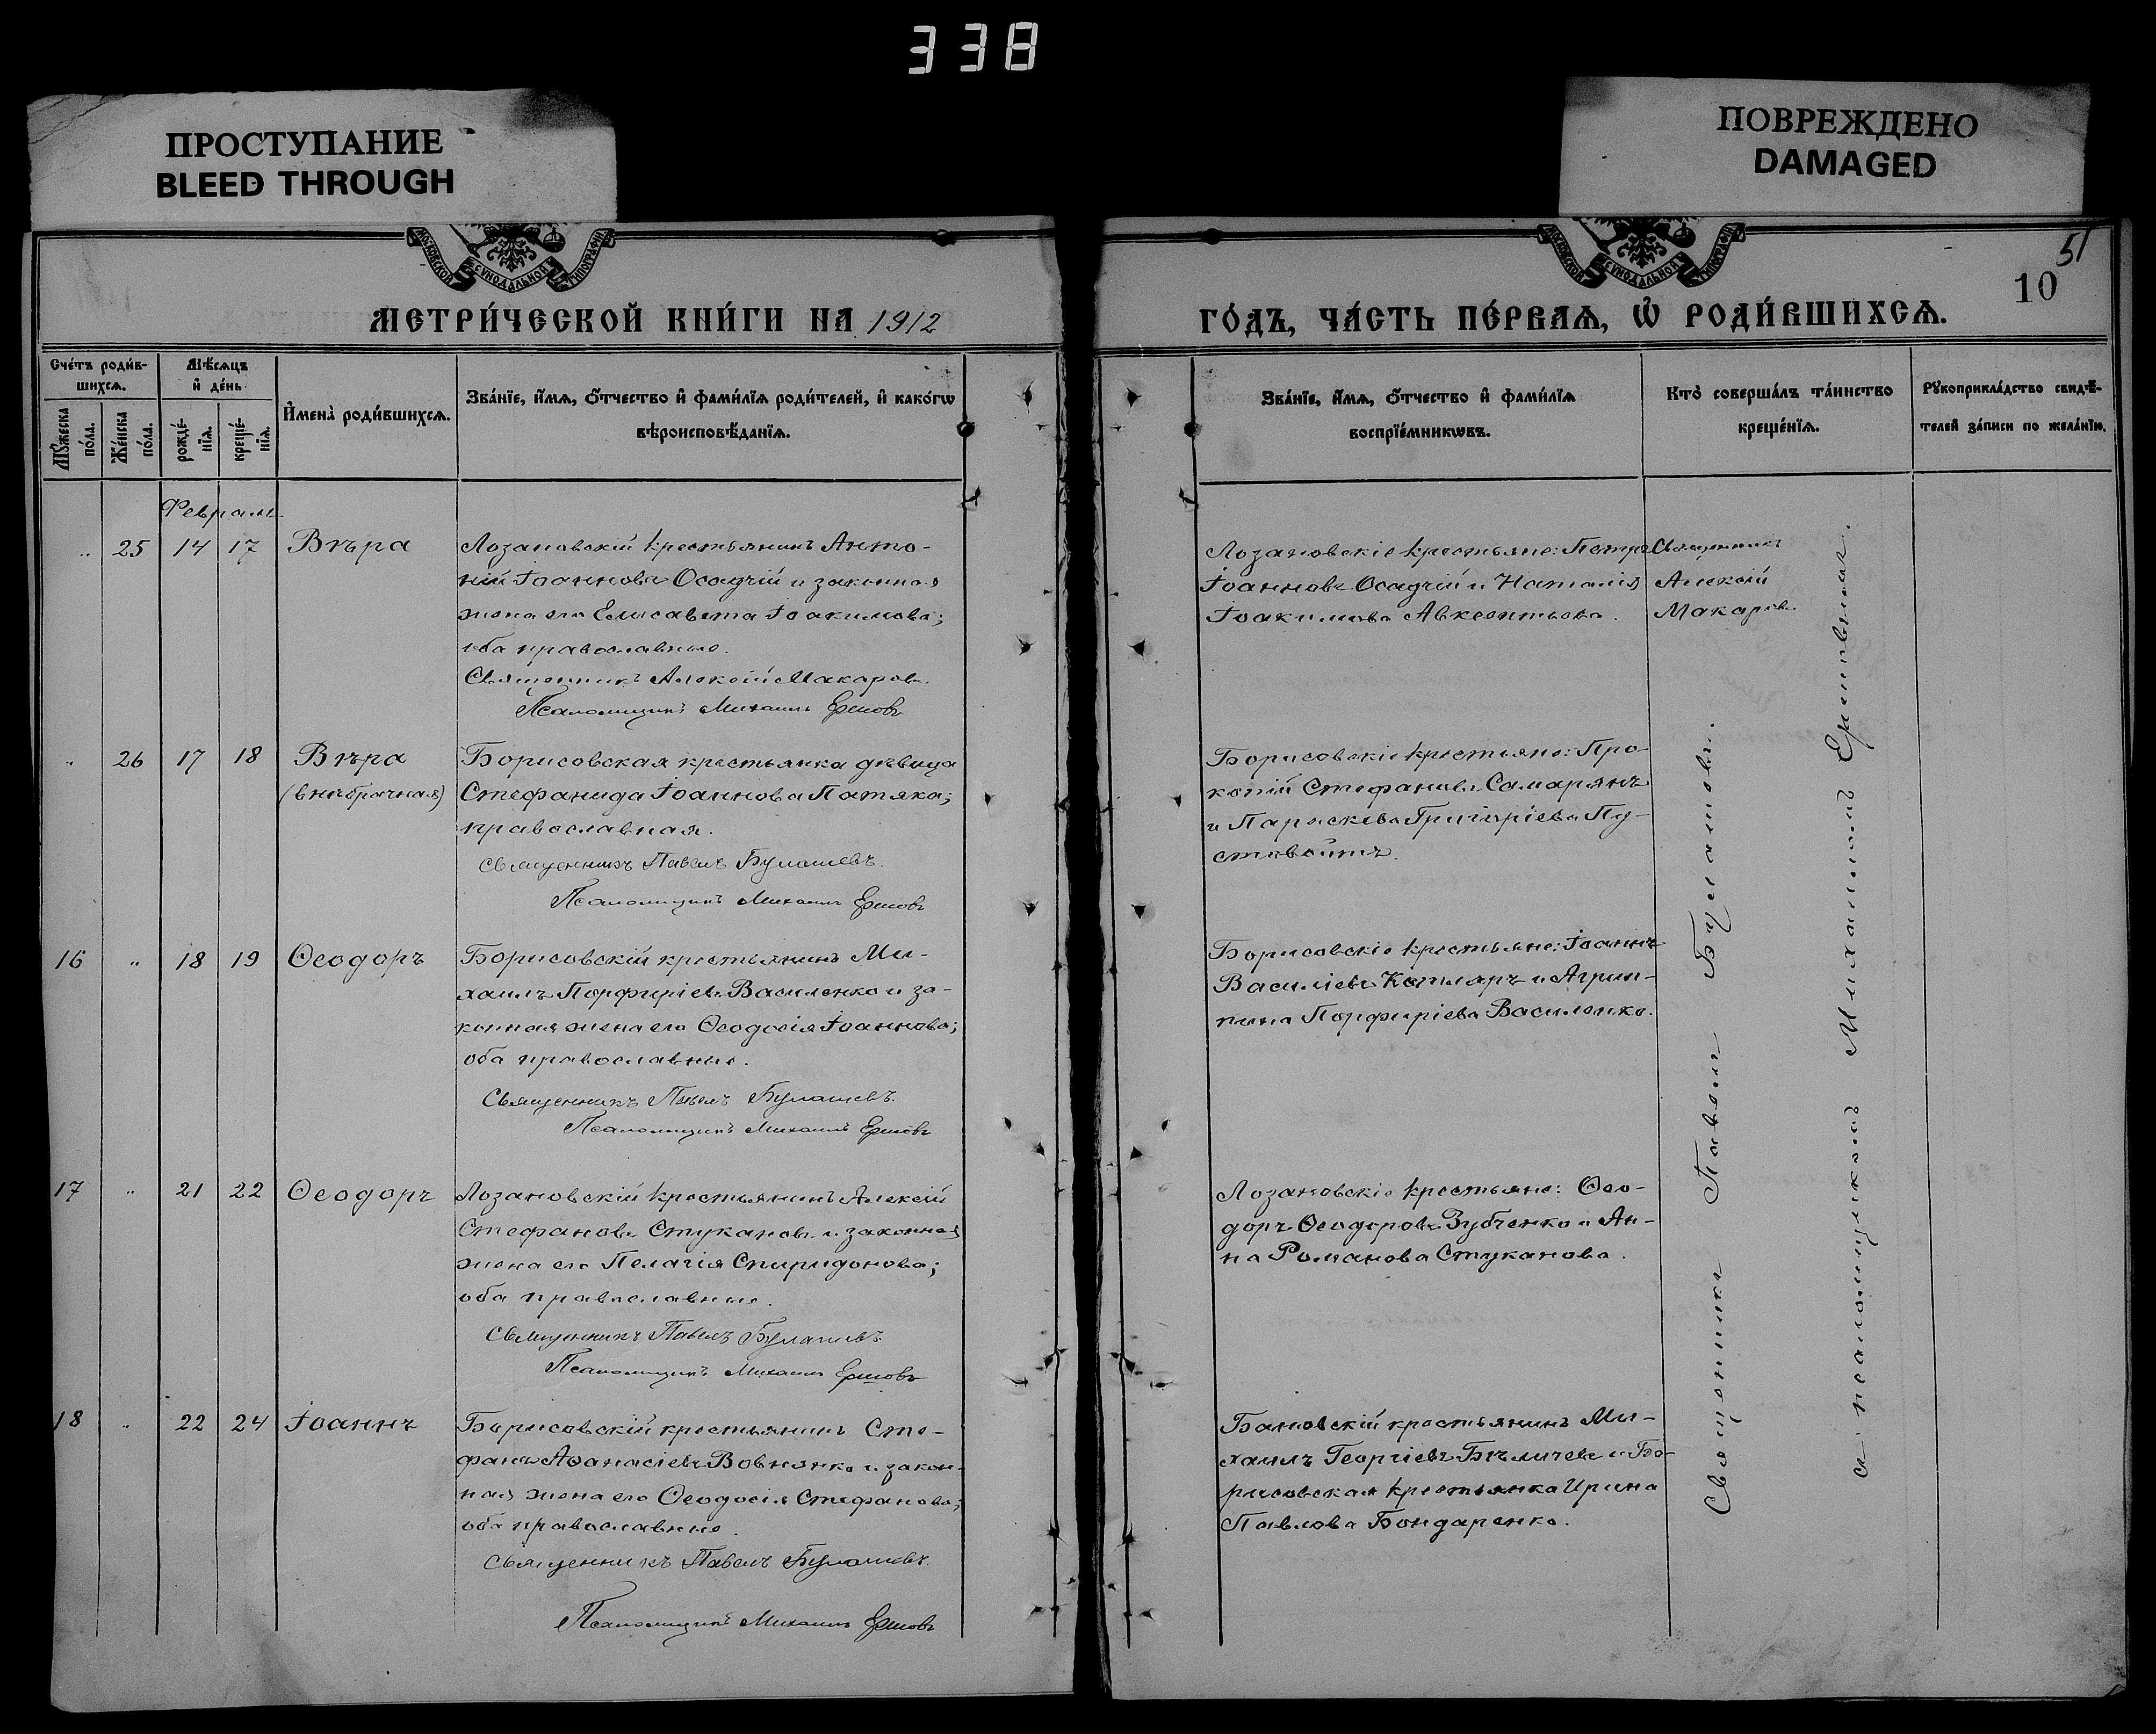 338
ПРОСТУПАНИЕ
BLEED THROUGH
ПОВРЕЖДЕНО
DAMAGED
МОСКОВСКОЙ СУНОДАЛЬНОЙ ТИПОГРАФІИ
МОСКОВСКОЙ СУНОДАЛЬНОЙ ТИПОГРАФІИ
51
10
МЕТРИ́ЧЕСКОЙ КНИ́ГИ НА 1912
ГО́ДЪ, ЧА́СТЬ ПЕ́РВАѦ, Ѡ РОДИ́ВШИХСѦ.
Сче́тъ роди́в-
шихсѧ.
Мꙋ́жеска по́ла.
Же́нска по́ла.
Мѣ́сѧцъ
и҆ де́нь
рожде́-
нїѧ.
креще́-
нїѧ.
И҆мена̀ роди́вшихсѧ.
Зва́нїе, и҆́мѧ, ѻ҆́тчество и҆ фами́лїѧ роди́телей, и҆ како́гѡ
вѣроисповѣ́данїѧ.
Зва́нїе, и҆́мѧ, ѻ҆́тчество и҆ фами́лїѧ
воспрїе́мникѡвъ.
Кто̀ соверша́лъ та́инство
креще́нїѧ.
Рꙋкоприкла́дство свидѣ́-
телей за́писи по жела́нїю.
Февраль
" 25 14 17 Вѣра
Лозановскій крестьянинъ Анто-
ній Іоанновъ Осадчій и законная
жена его Елисавета Іоакимова;
оба православные.
Священникъ Алексій Макаровъ.
Псаломщикъ Михаилъ Ершовъ
Лозановскіе крестьяне: Петръ
Іоанновъ Осадчій и Наталія
Іоакимова Авксентьева.
Священникъ
Алексій
Макаровъ.
" 26 17 18 Вѣра
(внѣбрачная)
Борисовская крестьянка дѣвица
Стефанида Іоаннова Патяка;
православная.
Священникъ Павелъ Булашевъ.
Псаломщикъ Михаилъ Ершовъ
Борисовскіе крестьяне: Про-
копій Стефановъ Самарянъ
и Параскева Григоріева Пу-
стовойтъ.
16 " 18 19 Ѳеодоръ
Борисовскій крестьянинъ Ми-
хаилъ Порфиріевъ Василенко и за-
конная жена его Ѳеодосія Іоаннова;
оба православные.
Священникъ Павелъ Булашевъ.
Псаломщикъ Михаилъ Ершовъ
Борисовскіе крестьяне: Іоаннъ
Василіевъ Котляръ и Агрип-
пина Порфиріева Василенко.
17 " 21 22 Ѳеодоръ
Лозановскій крестьянинъ Алексій
Стефановъ Стукановъ и законная
жена его Пелагія Спиридонова;
оба православные.
Священникъ Павелъ Булашевъ
Псаломщикъ Михаилъ Ершовъ
Лозановскіе крестьяне: Ѳео-
доръ Ѳеодоровъ Зубченко и Ан-
на Романова Стуканова.
18 " 22 24 Іоаннъ
Борисовскій крестьянинъ Сте-
фанъ Аѳанасіевъ Вовнянко и закон-
ная жена его Ѳеодосія Стефанова;
оба православные.
Священникъ Павелъ Булашевъ.
Псаломщикъ Михаилъ Ершовъ
Бановскій крестьянинъ Ми-
хаилъ Георгіевъ Бѣличевъ и Бо-
рисовская крестьянка Ирина
Павлова Бондаренко.
Священникъ Павелъ Булашевъ.
съ псаломщикомъ Михаиломъ Ершовымъ.